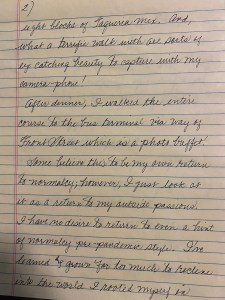 2)
eight blocks of Taqueria Mex. And,
what a terrific walk with all sorts of
eye catching beauty to capture with my
camera-phone!
After dinner, I walked the entire
course to the bus terminal via way of
Front Street which is a photo buffet!
Some believe this to be my own return
to normalcy, however, I just look at
it as a return to my outside passions.
I have no desire to return to even a hint
of normalcy pre-pandemic style. I've
learned & grown far too much to recline
onto the world I rooted myself in